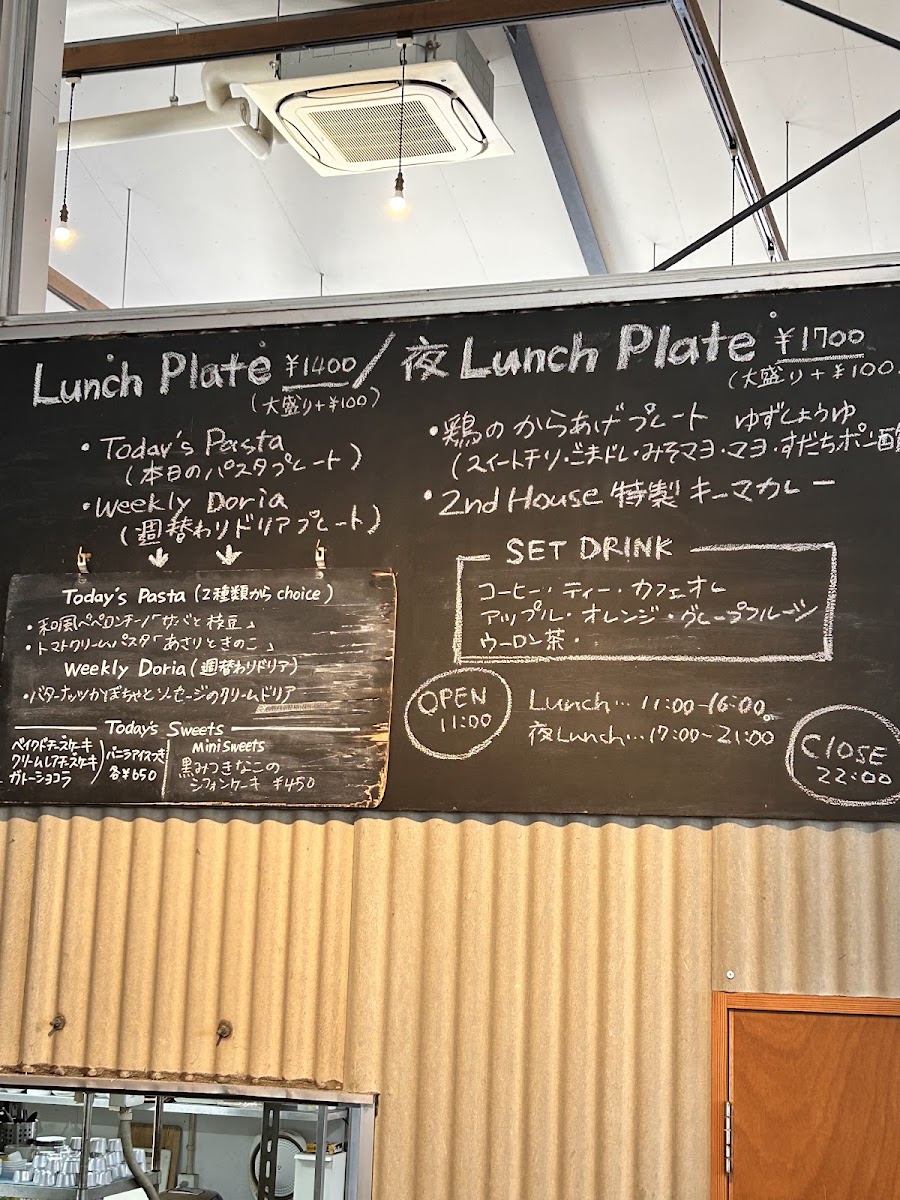 Lunch Plate ¥1400 / 夜 Lunch Plate ¥1700
(大盛り+¥100)
(大盛り+¥100)
・Today's Pasta
(本日のパスタプレート)
・Weekly Doria
(週替わりドリアプレート)
・鶏のからあげプレート ゆずしょうゆ
(スイートチリ・ごまドレ・みそマヨ・マヨ・すだちポン酢
・2nd House 特製 キーマカレー
SET DRINK
コーヒー・ティー・カフェオレ
アップル・オレンジ・グレープフルーツ
ウーロン茶・
Today's Pasta (2種類から choice)
・和風ペペロンチーノ「サバと枝豆」
・トマトクリームパスタ「あさりときのこ」
Weekly Doria (週替わりドリア)
・バターナッツかぼちゃとソーセージのクリームドリア
Today's Sweets
ベイクドチーズケーキ
クリームレアチーズケーキ
ガトーショコラ
バニラアイス
各¥650
Mini Sweets
黒みつきなこの
シフォンケーキ ¥450
OPEN
11:00
Lunch… 11:00-16:00
夜Lunch…17:00~21:00
CLOSE
22:00